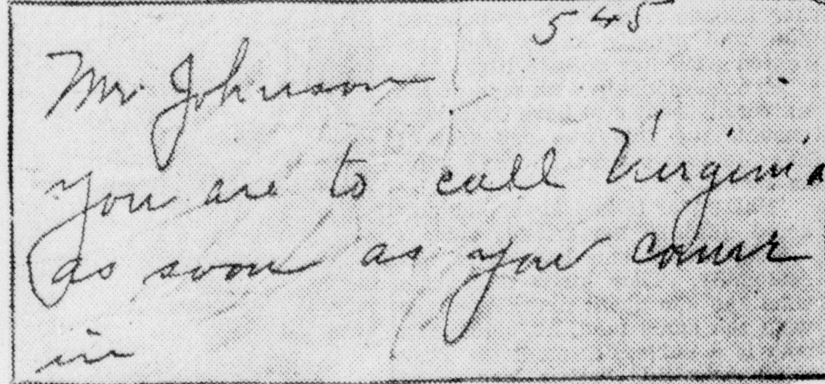 5 45
Mr Johnson
you are to call Virginia
as soon as you come
in